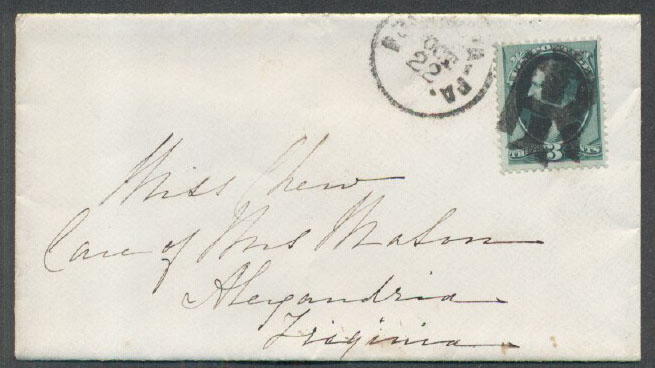 OCT
22
PA.
THREE CENTS
3
Miss Chew
Care of Mrs Mason
Alexandria
Virginia